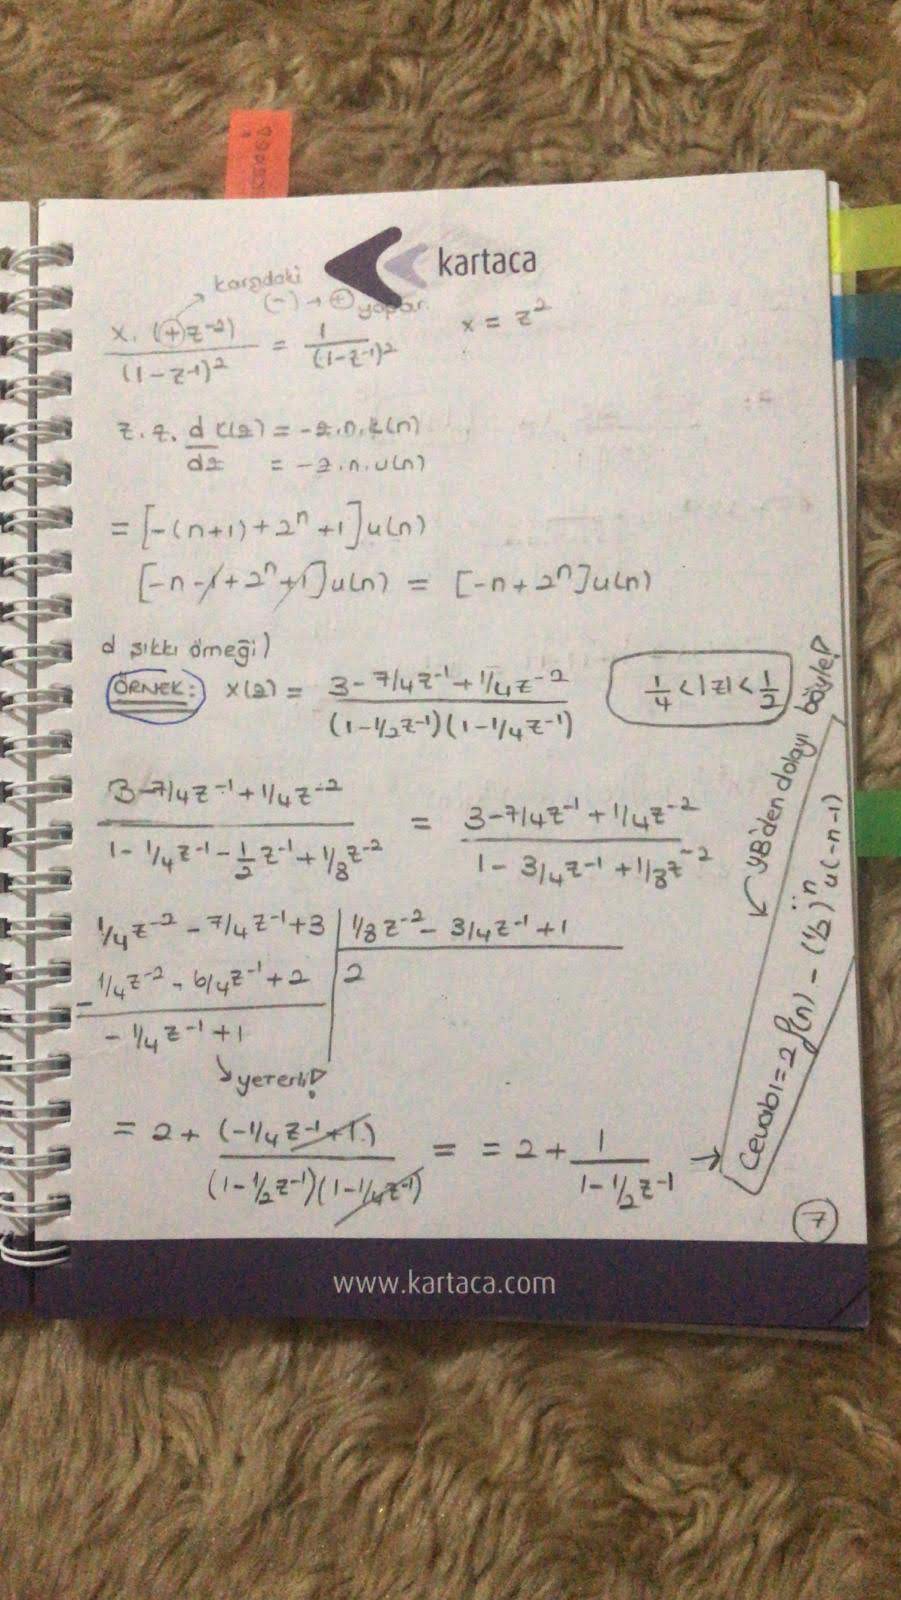 kartaca
karşıdaki
(-) → (+) yapar.
x. (+z^-2) / (1-z^-1)^2 = 1 / (1-z^-1)^2   x = z^2
z. z. d/dz X(z) = -z.n.x(n)
= -z.n.u(n)
= [-(n+1) + 2^n + 1] u(n)
[-n-1+2^n+1] u(n) = [-n + 2^n] u(n)
d şıkkı örneği)
ÖRNEK: X(z) = 3-7/4z^-1+1/4z^-2 / (1-1/2z^-1)(1-1/4z^-1)   1/4 < |z| < 1/2
3-7/4z^-1+1/4z^-2 / 1-1/4z^-1-1/2z^-1+1/8z^-2 = 3-7/4z^-1+1/4z^-2 / 1-3/4z^-1+1/8z^-2
1/4z^-2 - 7/4z^-1+3 | 1/8z^-2 - 3/4z^-1+1
- 1/4z^-2 - 6/4z^-1+2 | 2
- 1/4z^-1 + 1
↘ yeterli!
= 2 + (-1/4z^-1+1) / (1-1/2z^-1)(1-1/4z^-1) = = 2 + 1 / 1-1/2z^-1 →
Cevabı = 2δ(n) - (1/2)^n u(-n-1)
↙ YB'den dolayı böyle!
7
www.kartaca.com